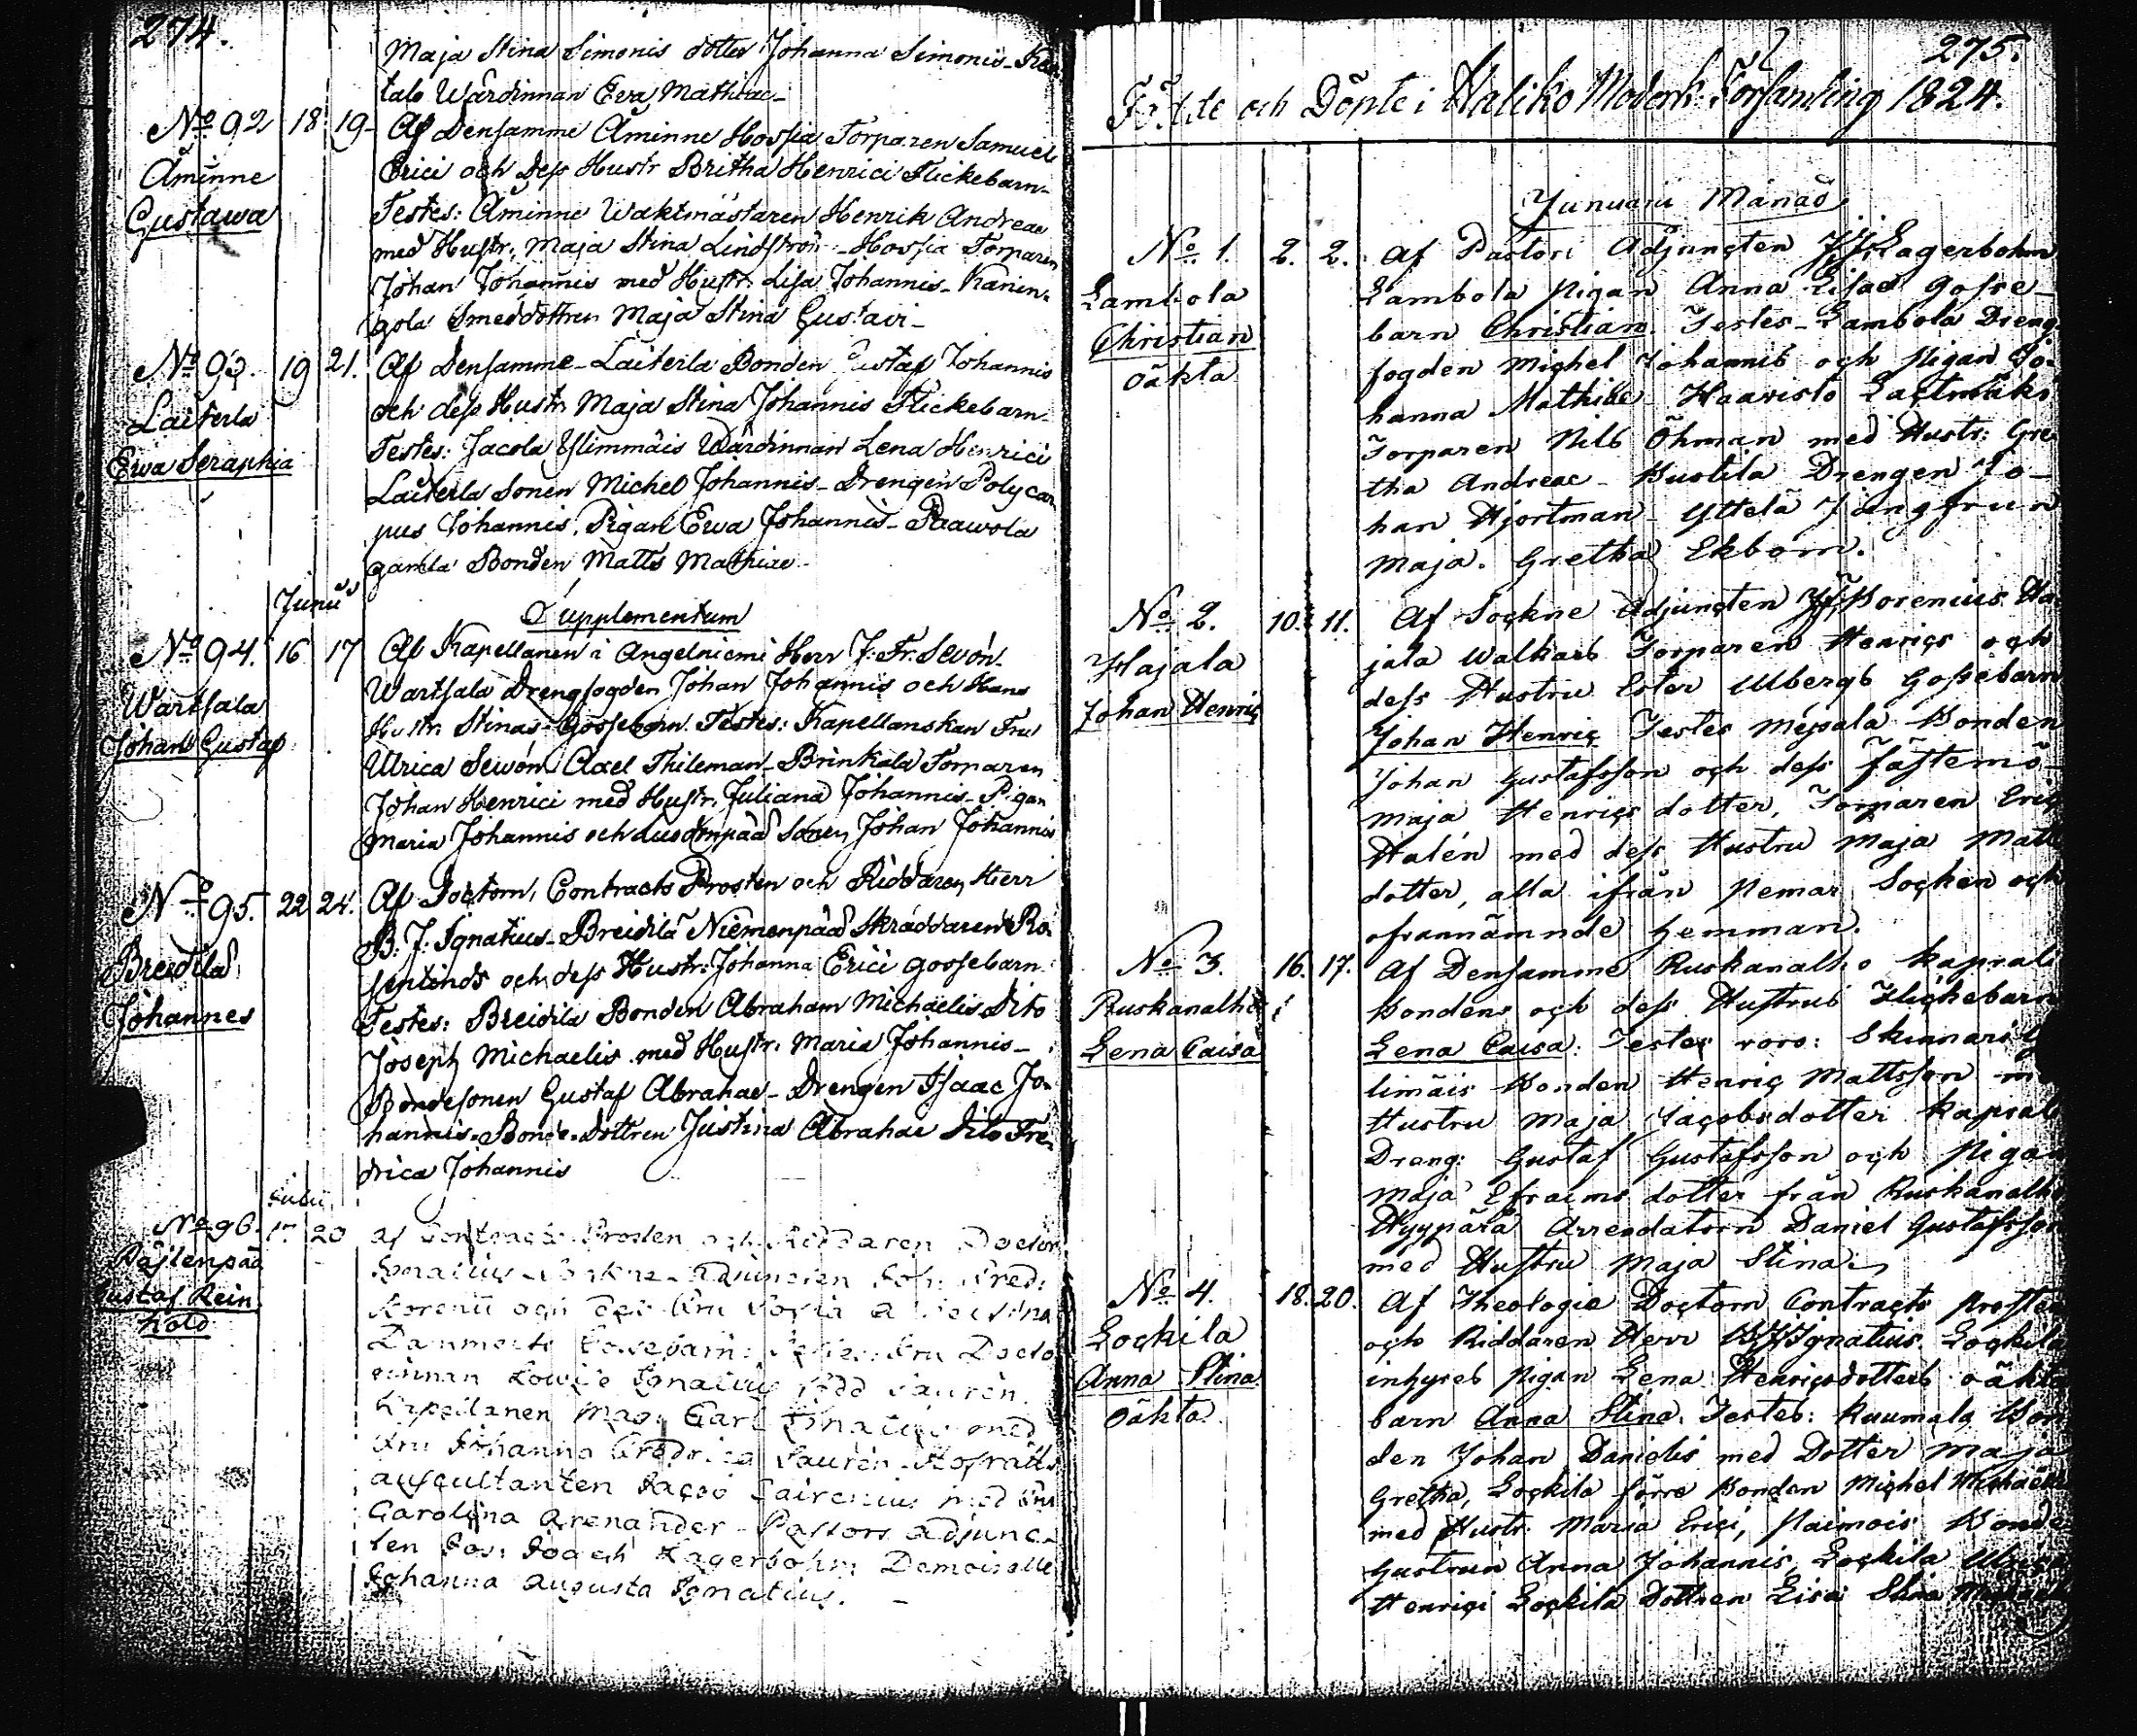 274.
Maja Stina Simonis dotter Johanna Simonis
tals Wärdinnan Eva Mathiae
No 92 18 19 Af Densamme Åminne Hossia Torparen Samuel
Åminne Erici och Dess Hustr Britha Henrici Flickebarn
Gustawa Testes: Åminne Waktmästaren Henrik Andreae
med Hustr. Maja Stina Lindström Hossia Torparen
Johan Johannis med Hustr. Lisa Johannis
gola Smeddottren Maja Stina Gustavi
No 93. 19 21. Af Densamme Laiterla Bonden Gustaf Johannis
Laiterla och dess Hustr. Maja Stina Johannis Flickebarn
Ewa Seraphia Testes: Jacola Ylimmäis Wärdinnan Lena Henrici
Laiterla Sonen Michel Johannis Drengen Polycar
pus Johannis, Pigan Ewa Johannis Paawola
gamla Bonden Matts Mathiae
Junii Supplementum
No 94. 16 17 Af Kapellanen i Angelniemi Herr J. Fr. Sevón
Wartsala Wartsala Drengfogden Johan Johannis och Hans
Johan Gustaf Hustr. Stinas Gossebarn. Testes: Kapellanskan Fru
Ulrica Sewón, Thileman Brinkala Torparen
Johan Henrici med Hustr. Juliana Johannis Pigan
Maria Johannis och Sonen Johan Johannis
No 95. 22 24. Af Doctorn, Contracts Prosten och Riddaren Herr
Breidila B. J. Ignatius Breidilä Niemenpää Skräddaren Ro
Johannes sentinds och dess Hustr. Johanna Erici gossebarn
Testes: Breidila Bonden Abraham Michaelis Dito
Joseph Michaelis med Hustr. Maria Johannis
Bondesonen Gustaf Abrahae Drengen Isaac Jo
hannis Bonde dottren Justina Abrahae dito Fre
drica Johannis
No 96. 17. 20 af Contracts Prosten och Riddaren Doctor
Ignatius Sockne Adjuncten Joh. Fred.
Gustaf Rein Korenii och des Fru Sofia
hold
Danmarks Gossebarn: Testes: Fru Docto
rinnan Lowise Ignatius född Saurén
Kapellanen Mag. Carl Ignatius med
Fru Johanna Fredrica Saurén Hofrätts
auscultanten Jacob med Fru
Carolina Arenander Pastors adjunc
ten Joach Lagerbohm Demoiselle
Johanna Augusta Ignatius.
275.
Födde och Döpte i Haliko Moderk. Församling 1824.
Januarii Månad
No 1. 2. 2. Af Pastors Adjuncten J J Lagerbohm
Lambola Lambola Pigan Anna Lisas gosse
Christian barn Christian. Testes Lambola Dreng
oäkta fogden Michel Johannis och Pigan Jo
hanna Mathiae Haaristo Lactmäks
Torparen Nils Öhman med Hustr. Gre
tha Andreae Kustila Drengen Jo
han Hjortman Yttelä Jungfrun
Maja Gretha Ekbom.
No 2. 10. 11. Af Sockne Adjuncten J F Korenius Ha
Hajala jala Walkars Torparen Henrics och
Johan Henric dess Hustru Ester Ulbergs Gossebarn
Johan Henric Testes Meisala Bonden
Johan Gustafsson och dess Fästemö
Maja Henrics dotter, Torparen Eric
Halén med dess Hustru Maja Matts
dotter, alla ifrån Pemar Socken och
ofvannämnde hemman.
No 3. 16. 17. Af Densamme Ruskanalho Kaprals
Ruskanalho Bondens och dess Hustrus Flickebarn
Lena Caisa Lena Caisa: Testes voro: Skinnari Y
limäis Bonden Henric Mattsson m
Hustru Maja Jacobsdotter Kaprals
Dräng: Gustaf Gustafsson och Pigan
Maja Efraims dotter från Ruskanalho
Hyypärä Arrendatorn Daniel Gustafsson
med Hustru Maja Stina
No 4. 18. 20. Af Theologie Doctorn Contracts Prosten
Lockila och Riddaren Herr B J Ignatius Lockila
Anna Stina inhyses Pigan Lena Henricsdotters oäkta
oäkta barn Anna Stina. Testes: Kuumala Bon
den Johan Danielis med Dotter Maja
Gretha, Lockila förre Bonden Michel Michaelis
med Hustr. Maria Erici, Paimois Bonde
hustrun Anna Johannis, Lockila Ulrica
Henrici Lockila Dottren Lisa Stina